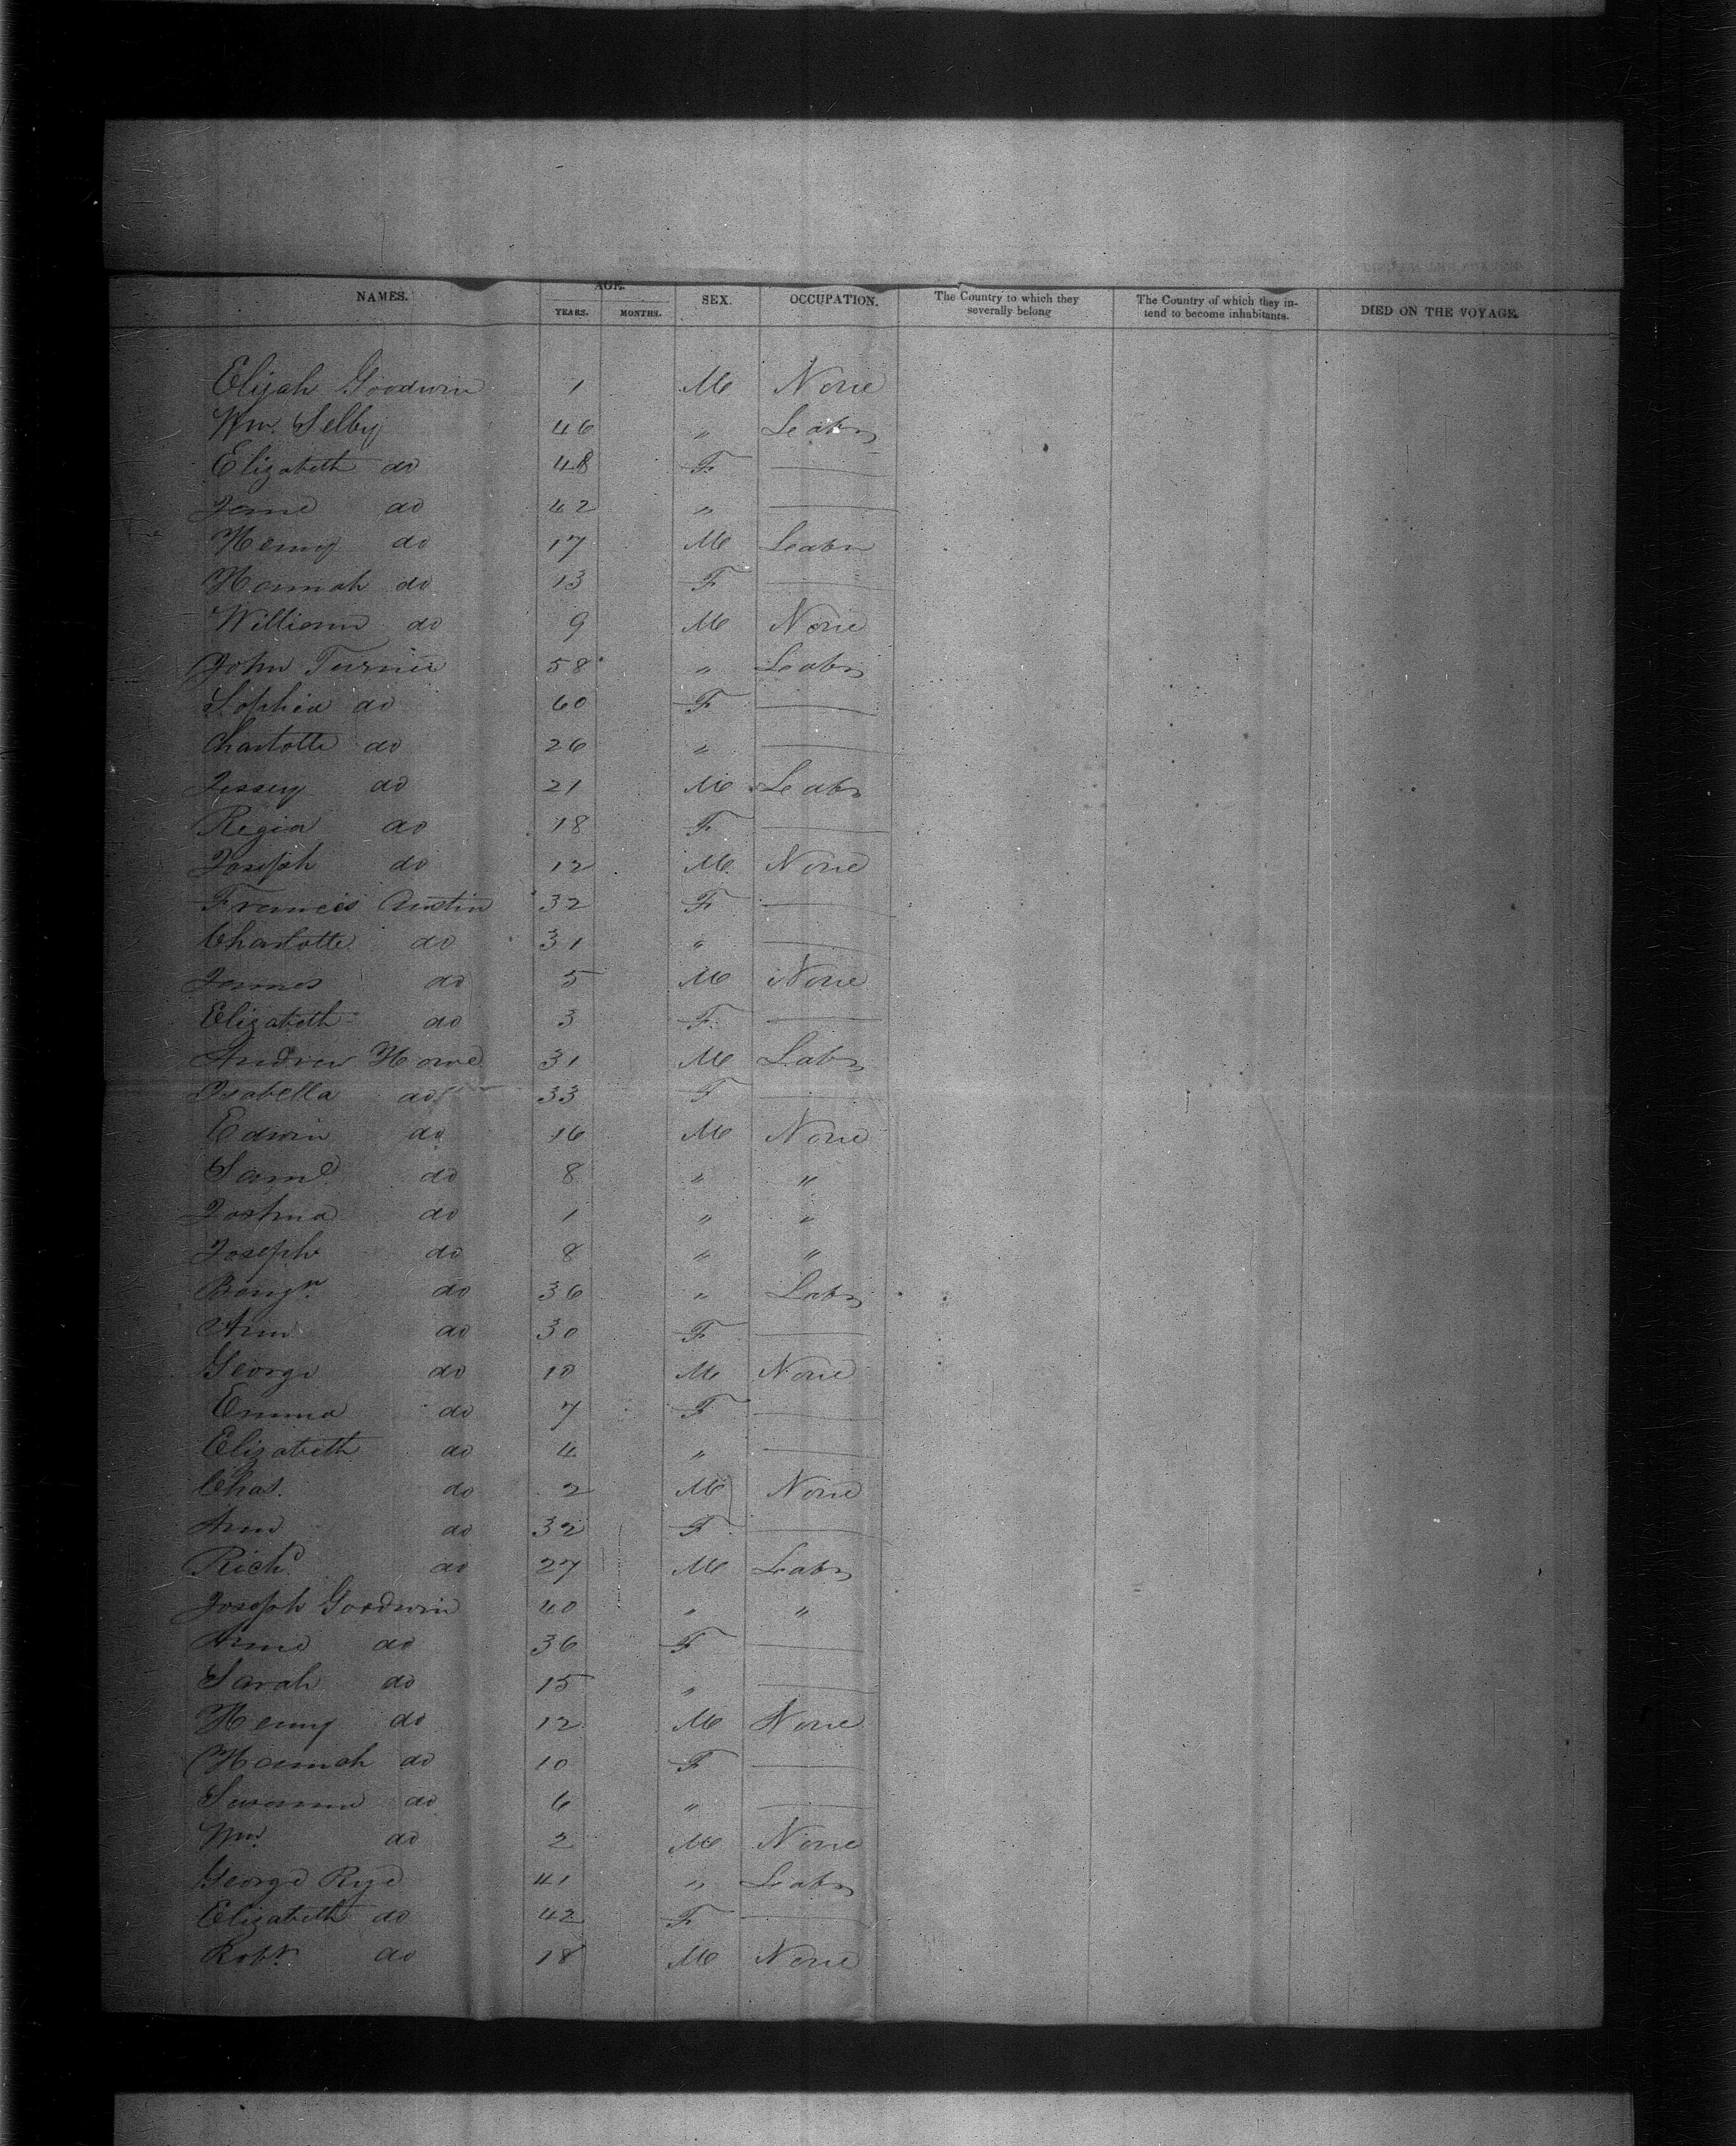 NAMES. AGE. YEARS. MONTHS. SEX. OCCUPATION. The Country to which they severally belong The Country of which they intend to become inhabitants. DIED ON THE VOYAGE.
Elijah Goodwin 1 M None
Wm. Selby 46 " Leabr
Elizabeth do 48 F —
Jane do 42 " —
Henry do 17 M Leabr
Hannah do 13 F —
William do 9 M None
John Turner 58 " Leabr
Sophia do 60 F —
Charlotte do 26 " —
Jessey do 21 M Leabr
Regia do 18 F —
Joseph do 12 M None
Francis Austin 32 F —
Charlotte do 31 " —
James do 5 M None
Elizabeth do 3 F —
Andrew Howe 31 M Labr
Isabella do 33 F —
Edwin do 16 M None
Saml do 8 " "
Joshua do 1 " "
Joseph do 8 " "
Benjn. do 36 " Labr
Ann do 30 F —
George do 10 M None
Emma do 7 F —
Elizabeth do 4 " —
Chas. do 2 M None
Ann do 32 F —
Richd do 27 M Labr
Joseph Goodwin 40 " "
Anne do 36 F —
Sarah do 15 " —
Henry do 12 M None
Hannah do 10 F —
Susanna do 6 " —
Wm. do 2 M None
George Rye 41 " Leabr
Elizabeth do 42 F —
Robt. do 18 M None